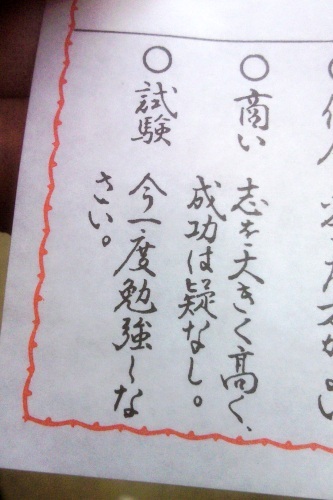 ○ 商い 志を大きく高く、
成功は疑なし。
○ 試験 今一度勉強しな
さい。